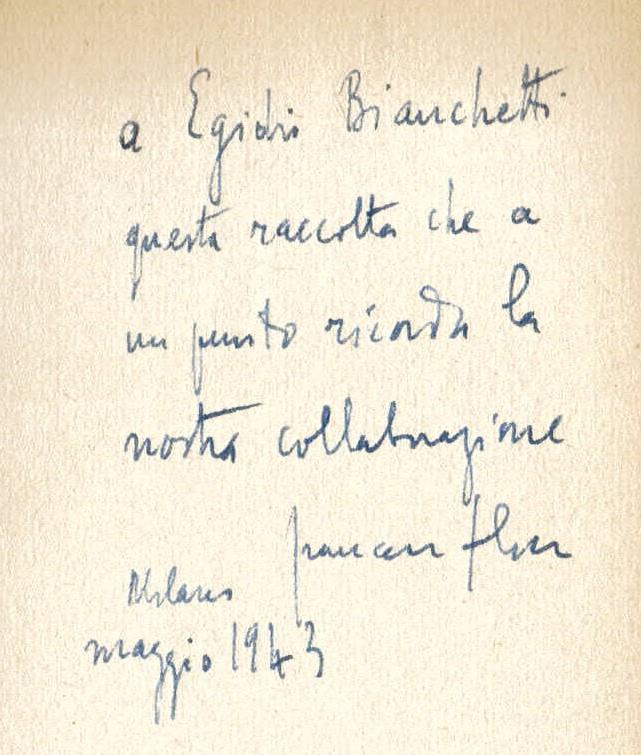 a Egidio Bianchetti
questa raccolta che a
un punto ricorda la
nostra collaborazione
Francesco Flora
Milano
maggio 1943